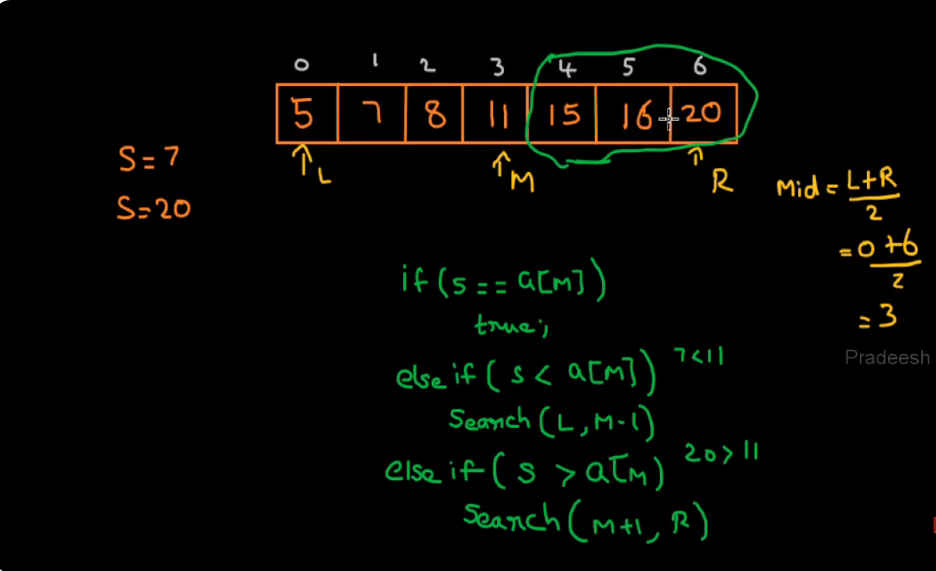 0 1 2 3 4 5 6
5 7 8 11 15 16 20
L M R
S = 7
S = 20
Mid = L+R
2
= 0+6
2
= 3
Pradeesh
if (s == a[M])
true;
else if (s < a[M]) 7<11
Search (L, M-1)
else if (s > a[M) 20 > 11
Search (M+1, R)